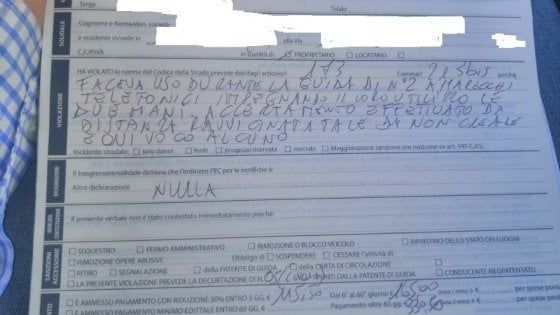 Targa Telaio
Cognome e Nome/den. società
e residente in/sede in alla Via
C.F./P.IVA in qualità di PROPRIETARIO LOCATARIO
SOLIDALE
HA VIOLATO le norme del Codice della Strada previste dal/dagli articolo/i 173 Comma/i 2, 3bis perché
FACEVA USO DURANTE LA GUIDA DI N°2 APPARECCHI
TELEFONICI IMPEGNANDO IL LORO UTILIZZO LE
DUE MANI. ACCERTAMENTO EFFETTUATO DA
DISTANZA RAVVICINATA TALE DA NON CREARE
EQUIVOCO ALCUNO
VIOLAZIONE
Incidente stradale: solo danni feriti prognosi riservata mortale Maggiorazione sanzione ore notturne ex art. 195 C.d.S.
Il trasgressore/solidale dichiara che l'indirizzo PEC per le notifiche è:
Altre dichiarazioni: NULLA
DICHIARAZIONI
Il presente verbale non è stato contestato immediatamente perché:
MANCATA CONTESTAZIONE
SEQUESTRO FERMO AMMINISTRATIVO RIMOZIONE O BLOCCO VEICOLO RIPRISTINO DELLO STATO DEI LUOGHI
RIMOZIONE OPERE ABUSIVE Obbligo di SOSPENDERE CESSARE l'attività di
RITIRO SEGNALAZIONE della PATENTE DI GUIDA della CARTA DI CIRCOLAZIONE
LA PRESENTE VIOLAZIONE PREVEDE LA DECURTAZIONE DI N. 05/CINQUE PUNTI DALLA PATENTE DI GUIDA CONDUCENTE NEOPATENTATO
SANZIONI ACCESSORIE
È AMMESSO PAGAMENTO CON RIDUZIONE 30% ENTRO 5 GG. € 115,50 Dal 6° al 60° giorno € 165,00 per spese
È AMMESSO PAGAMENTO MINIMO EDITTALE ENTRO 60 GG. € Pagamento oltre 60 gg. per spese